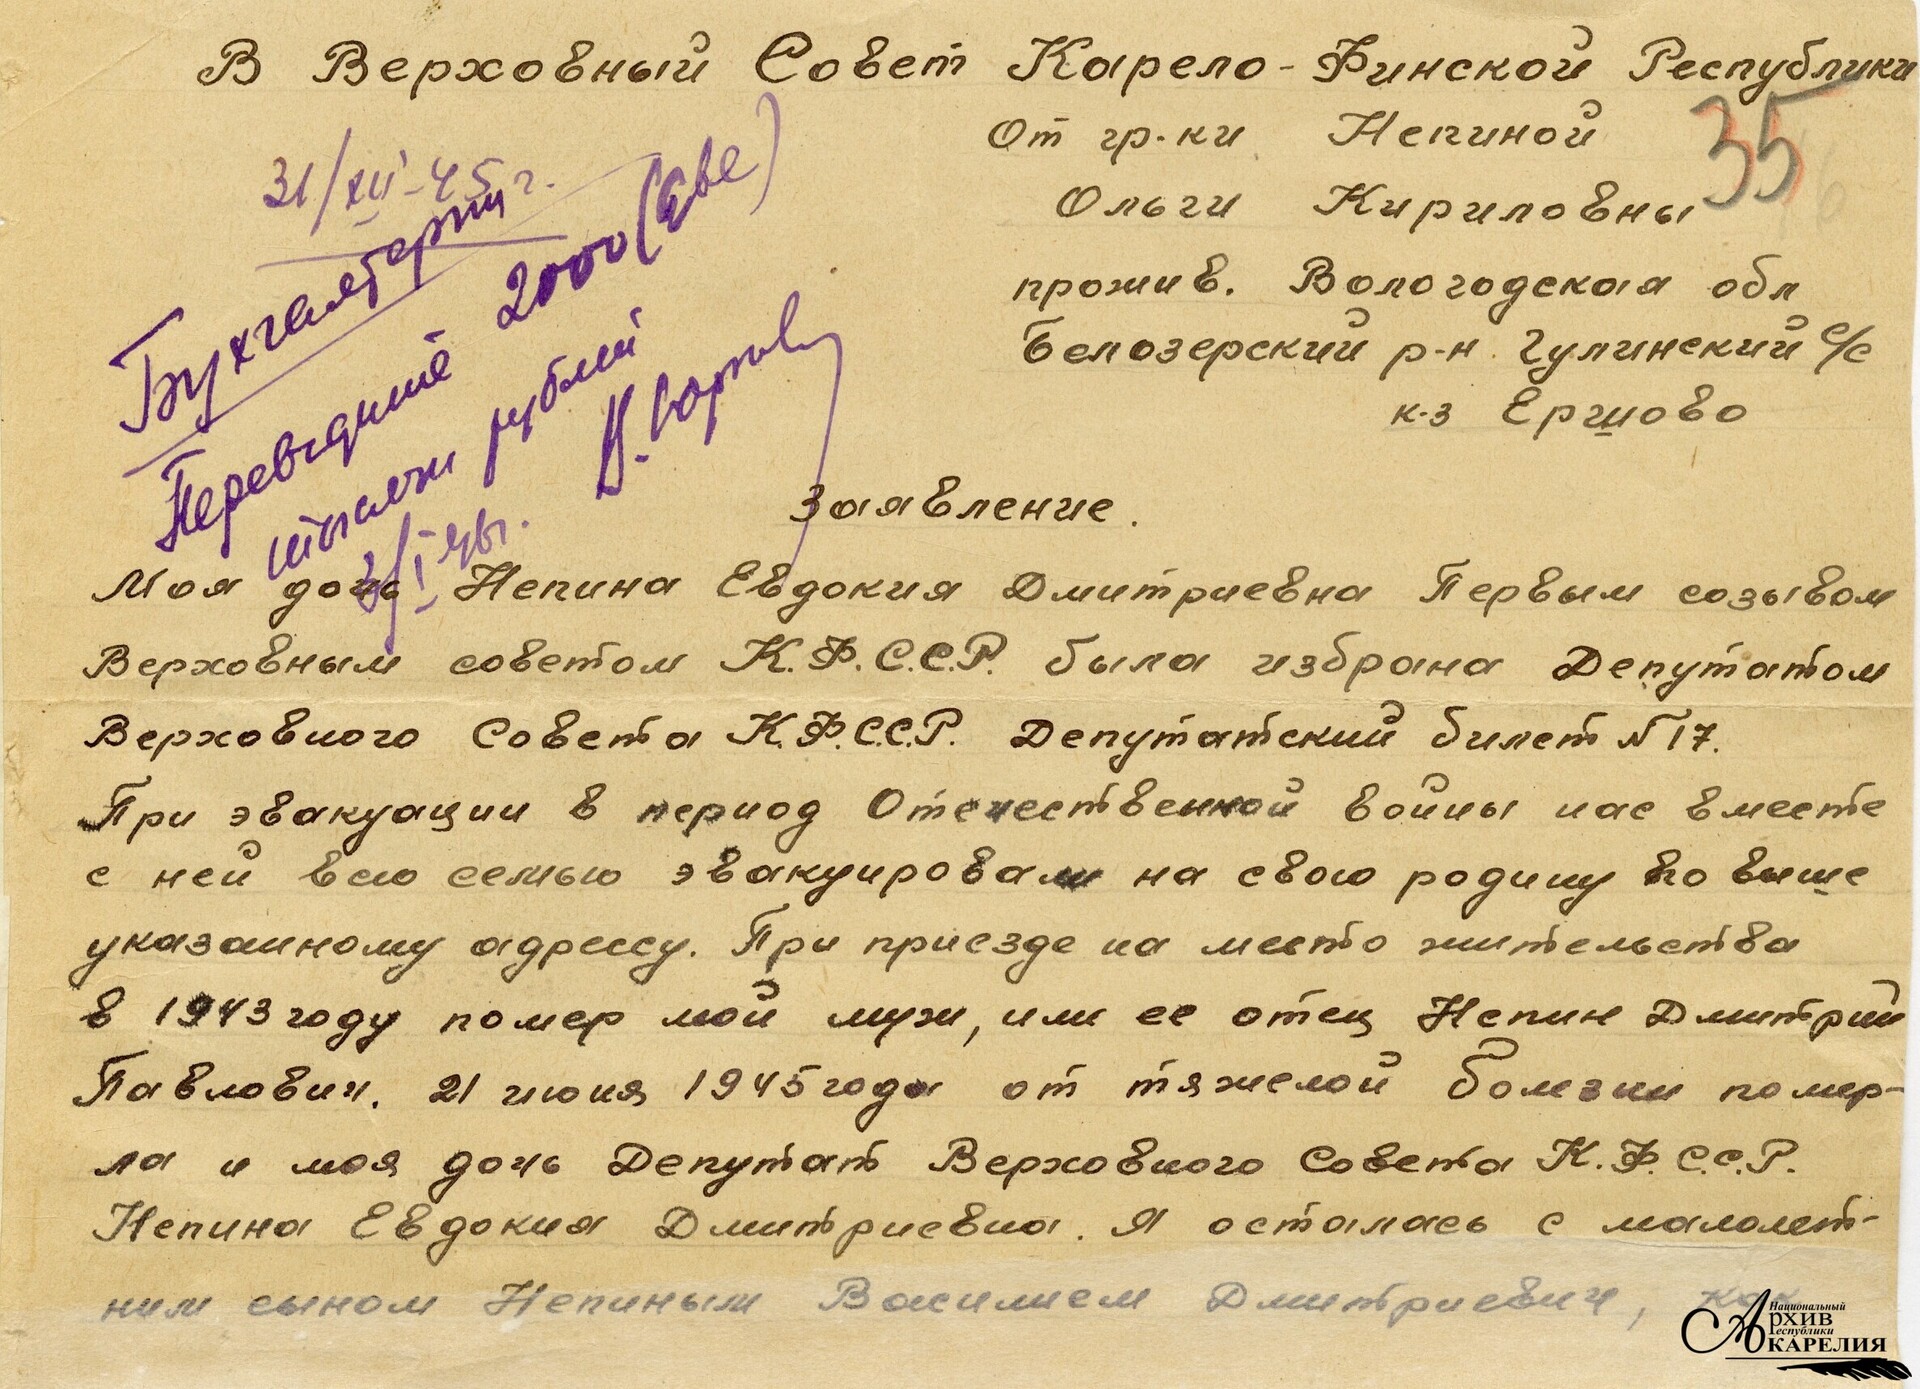 В Верховный Совет Карело-Финской Республики
От гр-ки Непиной
35
Ольги Кириловны
прожив. Вологодская обл
Белозерский р-н. Гулинский с/с
к-з Ершово
31/XII-45 г.
Бухгалтерии
Переведите 2000 (две)
тысячи рублей
3/I-46.
Заявление.
Моя дочь Непина Евдокия Дмитриевна Первым созывом
Верховным советом К.Ф.С.С.Р. была избрана Депутатом
Верховного Совета К.Ф.С.С.Р. Депутатский билет N 17.
При эвакуации в период Отечественной войны нас вместе
с ней всю семью эвакуировали на свою родину по выше
указанному адрессу. При приезде на место жительства
в 1943 году помер мой муж, или ее отец Непин Дмитрий
Павлович. 21 июня 1945 года от тяжелой болезни помер-
ла и моя дочь Депутат Верховного Совета К.Ф.С.С.Р.
Непина Евдокия Дмитриевна. Я осталась с малолет-
ним сыном Непиным Василием Дмитриевич, как
Национальный
Архив
Республики
Карелия